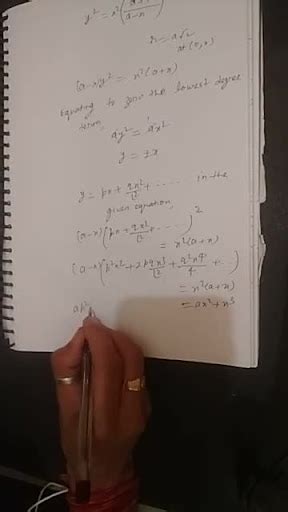 y² = x²(a+x / a-x)
r = a√2
at (0,x)
(a-x)y² = x²(a+x)
Equating to zero the lowest degree
term, ay² = ax²
y = ±x
y = px + qx²/⌊2 + ...... in the
given equation,
(a-x)(px + qx²/⌊2 + ......)²
= x²(a+x)
(a-x)(p²x² + 2pqx³/⌊2 + q²x⁴/4 + ...)
= x²(a+x)
ap² = ax² + x³